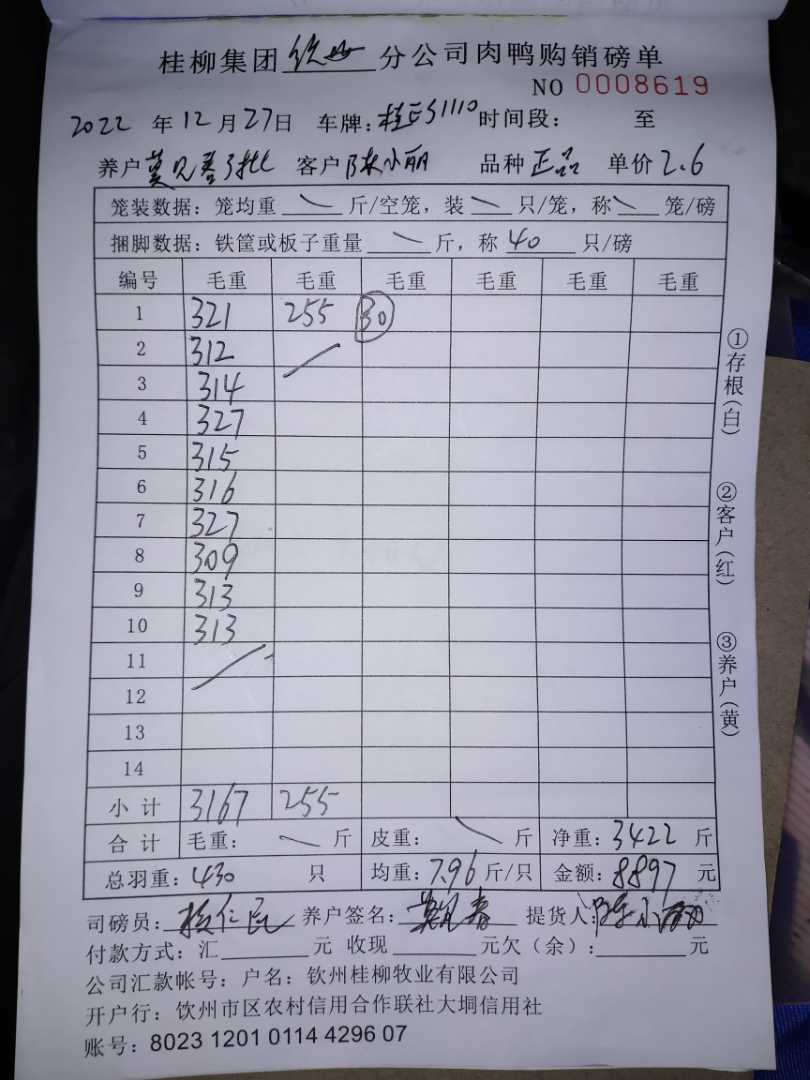 桂柳集团 钦州 分公司肉鸭购销磅单
NO 0008619
2022 年 12 月 27 日 车牌：桂 S1110 时间段： 至
养户 莫见春 3批 客户 陈小丽 品种 正品 单价 2.6
笼装数据：笼均重 \ 斤/空笼，装 \ 只/笼，称 \ 笼/磅
捆脚数据：铁筐或板子重量 \ 斤，称 40 只/磅
编号 毛重 毛重 毛重 毛重 毛重 毛重
1 321 255 30
2 312
3 314
4 327
5 315
6 316
7 327
8 309
9 313
10 313
11
12
13
14
小计 3167 255
合计 毛重： \ 斤 皮重： \ 斤 净重：3422 斤
总羽重：430 只 均重：7.96 斤/只 金额：8897 元
司磅员： 养户签名：莫见春 提货人：陈小丽
付款方式：汇 元 收现 元欠（余）： 元
公司汇款帐号：户名：钦州桂柳牧业有限公司
开户行：钦州市区农村信用合作联社大垌信用社
账号：8023 1201 0114 4296 07
①存根（白）
②客户（红）
③养户（黄）